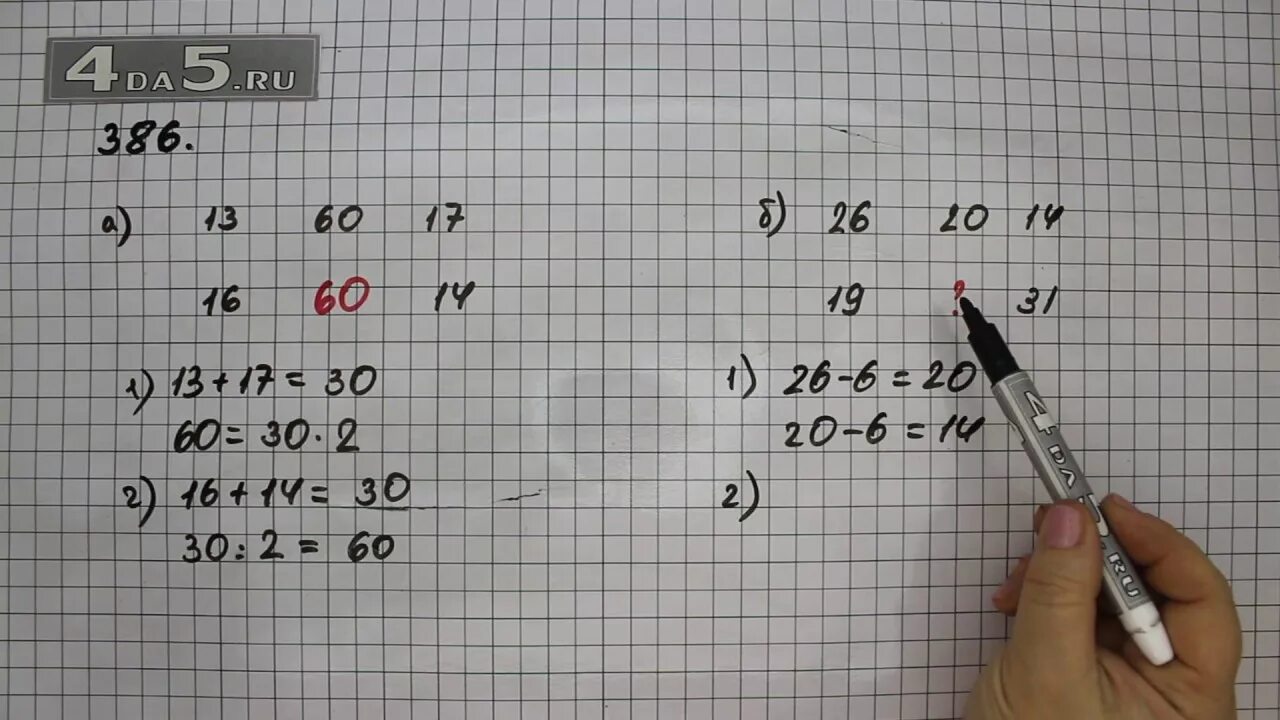 4DA5.RU
386.
а) 13 60 17
16 60 14
1) 13 + 17 = 30
60 = 30 · 2
2) 16 + 14 = 30
30 : 2 = 60
б) 26 20 14
19 ? 31
1) 26 - 6 = 20
20 - 6 = 14
2)
4DA5.RU